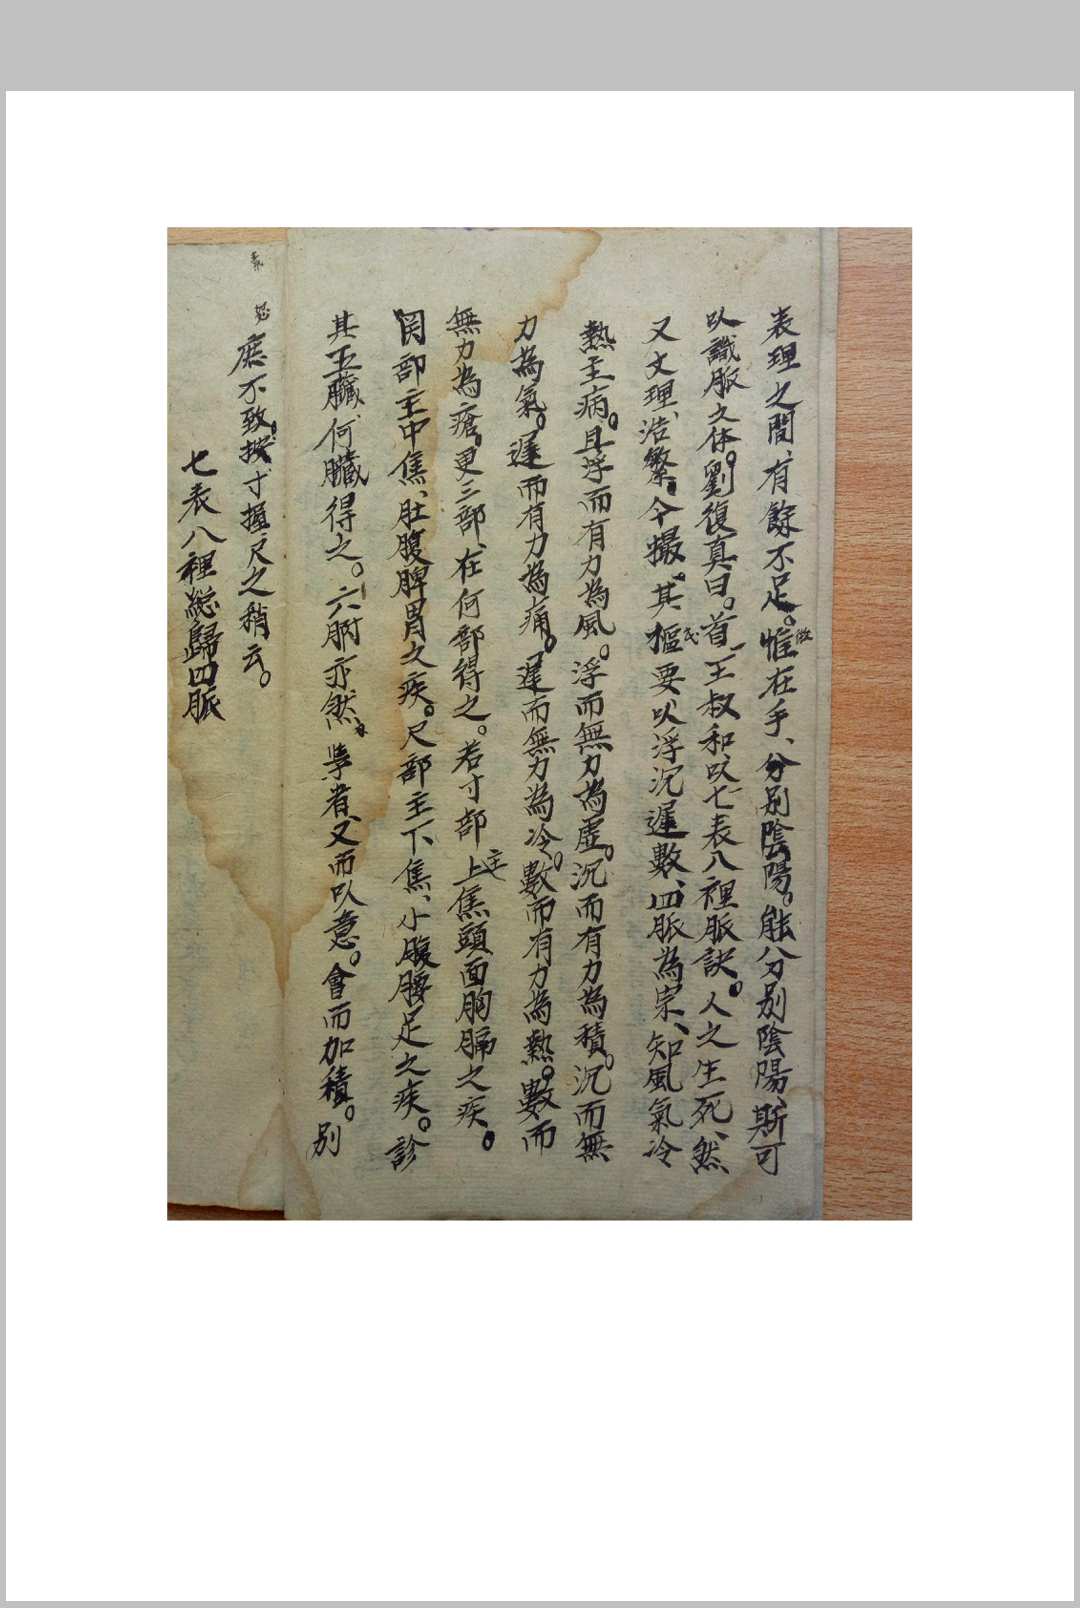 表理之間、有餘不足。惟在手、分別陰陽。能分別陰陽、斯可
以識脈之体。劉復真曰。首王叔和以七表八裡脈訣。人之生死、然
又文理、浩繁。今撮。其樞要以浮沉遲數、四脈為宗、知風氣冷
熱主病。且浮而有力為風。浮而無力為虛。沉而有力為積。沉而無
力為氣。遲而有力為痛。遲而無力為冷。數而有力為熱。數而
無力為瘡。更三部、在何部得之。若寸部主上焦頭面胸膈之疾。
関部主中焦、肚腹脾胃之疾。尺部主下焦、小腹腰足之疾。診
其五臟、何臟得之。六腑亦然。學者、又而以意。會而加積。別
庶不致按寸握尺之稍云。
七表八裡総歸四脈